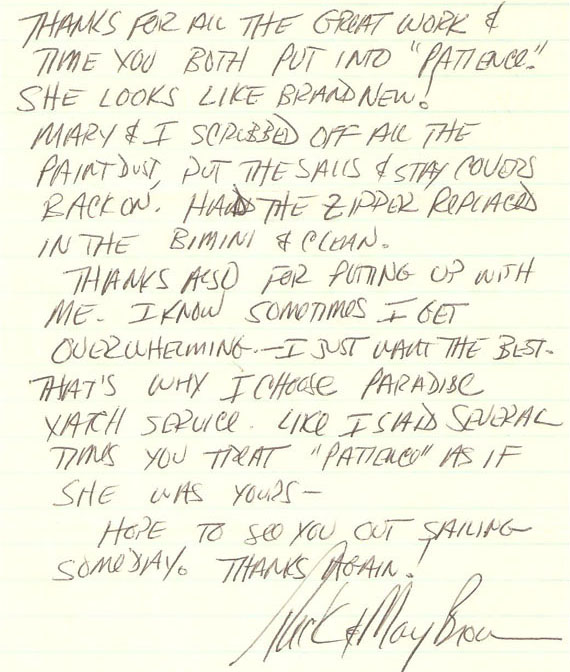 THANKS FOR ALL THE GREAT WORK &
TIME YOU BOTH PUT INTO "PATIENCE."
SHE LOOKS LIKE BRAND NEW!
MARY & I SCRUBBED OFF ALL THE
PAINT DUST, PUT THE SAILS & STAY COVERS
BACK ON. HAD THE ZIPPER REPLACED
IN THE BIMINI & CLEAN.
THANKS ALSO FOR PUTTING UP WITH
ME. I KNOW SOMETIMES I GET
OVERWHELMING. — I JUST WANT THE BEST.
THAT'S WHY I CHOOSE PARADISE
YATCH SERVICE. LIKE I SAID SEVERAL
TIMES YOU TREAT "PATIENCE" AS IF
SHE WAS YOURS —
HOPE TO SEE YOU OUT SAILING
SOMEDAY. THANKS AGAIN!
& Mary